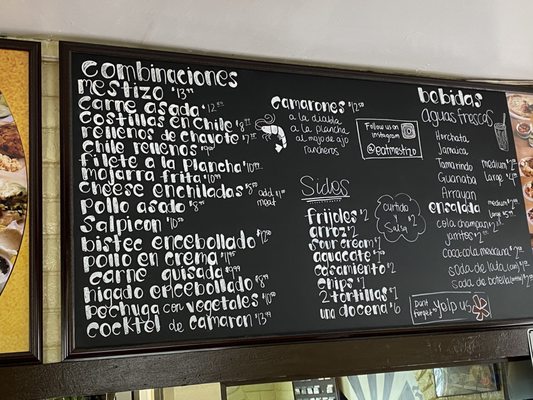 Combinaciones
mestizo $13
carne asada
costillas en chile
rellenos de chayote
chile rellenos
filete a la plancha
mojarra frita
cheese enchiladas
add meat
pollo asada
Salpicon
bistec encebollado
pollo en crema
carne guisada
higado encebollado
pechuga con vegetales
cocktel de camaron
camarones
a la diabla
a la plancha
al mojo de ajo
rancheros
Follow us on
Instagram
@eatmestizo
Sides
frijoles $2
arroz $2
sour cream $1
aguacate
casamiento
chips
2 tortillas $1
una docena $6
curtido
y
salsa $2
Don't
forget to Yelp us
bebidas
aguas frescas
Horchata
Jamaica
Tamarindo
Guanaba
Arrayan
medium
Large
ensalada
medium
Large
cola champagne
jarritos
coca cola mexicana
soda de lata (can)
soda de botella